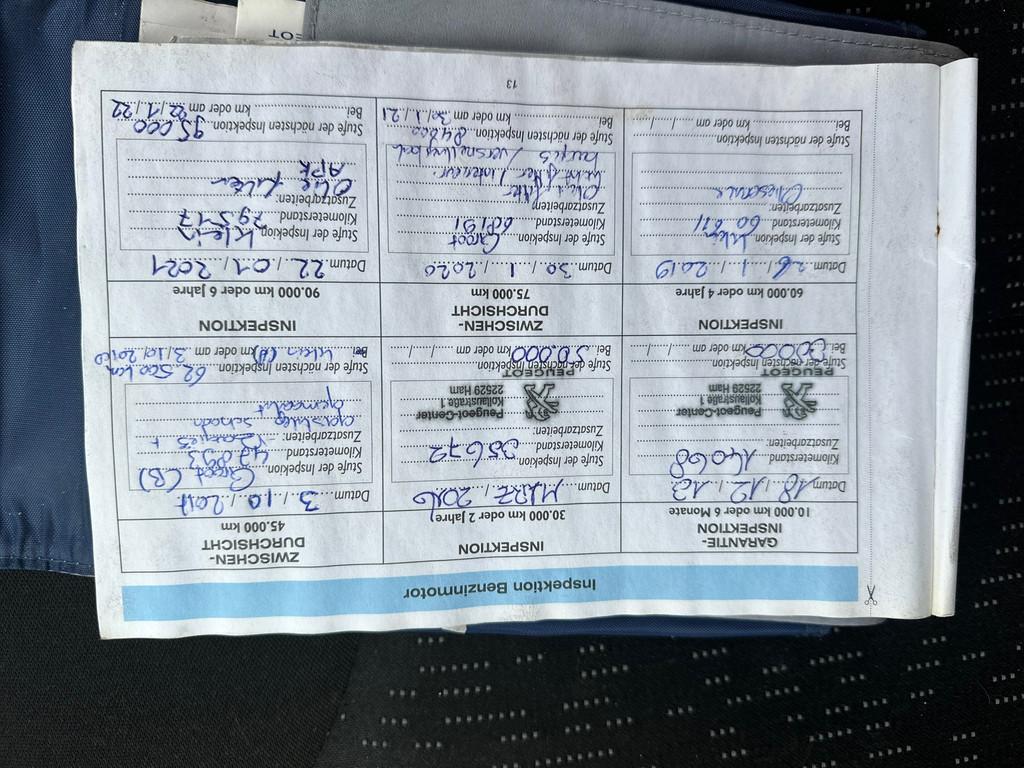 Inspektion Benzinmotor
GARANTIE-
INSPEKTION
10.000 km oder 6 Monate
Datum 18 / 12 / 13
Kilometerstand 14068
Zusatzarbeiten:
Peugeot-Center
Kollaustraße 1
22529 Ham
PEUGEOT
Stufe der nächsten Inspektion
Bei 30000 km oder am / /
INSPEKTION
30.000 km oder 2 Jahre
Datum MÄRZ / 2016
Stufe der Inspektion
Kilometerstand 35672
Zusatzarbeiten:
Peugeot-Center
Kollaustraße 1
22529 Ham
PEUGEOT
Stufe der nächsten Inspektion
Bei 50.000 km oder am / /
ZWISCHEN-
DURCHSICHT
45.000 km
Datum 3 / 10 / 2017
Stufe der Inspektion Groot (B)
Kilometerstand
Zusatzarbeiten:
schoon
gemaakt
Stufe der nächsten Inspektion 62.500 km
Bei klein (A) km oder am 3/10/
INSPEKTION
60.000 km oder 4 Jahre
Datum 26 / 1 / 2019
Stufe der Inspektion klein
Kilometerstand
Zusatzarbeiten:
Stufe der nächsten Inspektion
Bei km oder am / /
ZWISCHEN-
DURCHSICHT
75.000 km
Datum 30 / 1 / 2020
Stufe der Inspektion Groot
Kilometerstand
Zusatzarbeiten:
Olie, filter
lucht filter / interieur
Stufe der nächsten Inspektion 84000
Bei km oder am 30 / 1 / 21
INSPEKTION
90.000 km oder 6 Jahre
Datum 22 / 01 / 2021
Stufe der Inspektion klein
Kilometerstand 79517
Zusatzarbeiten:
Olie filter
APK
Stufe der nächsten Inspektion 95.000
Bei km oder am 22 / 1 / 22
13